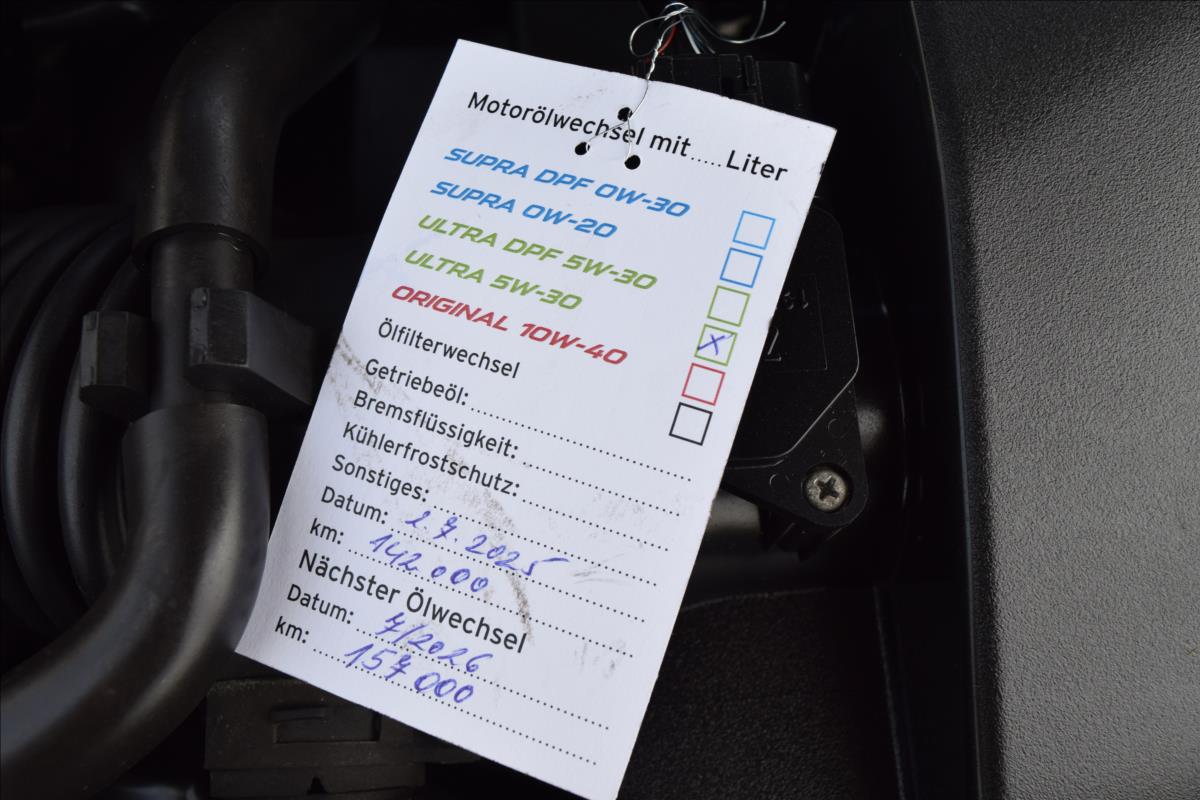 Motorölwechsel mit.....Liter
SUPRA DPF 0W-30
SUPRA 0W-20
ULTRA DPF 5W-30
ULTRA 5W-30 X
ORIGINAL 10W-40
Ölfilterwechsel
Getriebeöl:
Bremsflüssigkeit:
Kühlerfrostschutz:
Sonstiges:
Datum: 2 7 2025
km: 142 000
Nächster Ölwechsel
Datum: 7/2026
km: 157 000